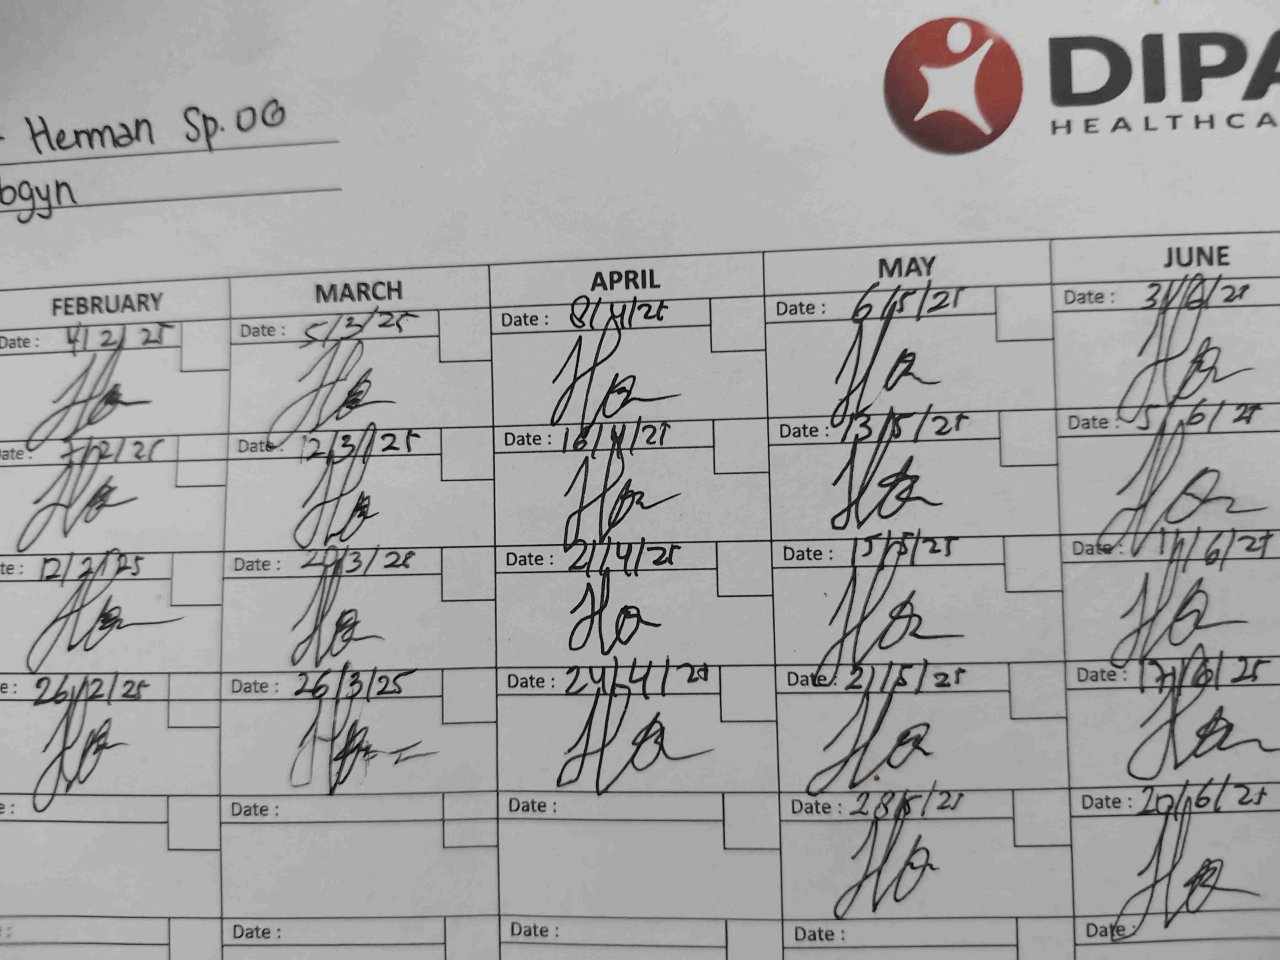 DIPA
HEALTHCA
Herman Sp.OG
bgyn
FEBRUARY MARCH APRIL MAY JUNE
Date : 4/2/25 Date : 5/3/25 Date : 8/4/25 Date : 6/5/25 Date : 3/6/25
ate: 7/2/25 Date: 12/3/25 Date : 16/4/25 Date : 13/5/25 Date : 5/6/25
te: 12/2/25 Date : /3/25 Date : 21/4/25 Date : 15/5/25 Date: 11/6/25
e: 26/2/25 Date : 26/3/25 Date : 24/4/25 Date: 21/5/25 Date : 17/6/25
e: Date : Date : Date : 28/5/25 Date : 20/6/25
: Date : Date : Date : Date: